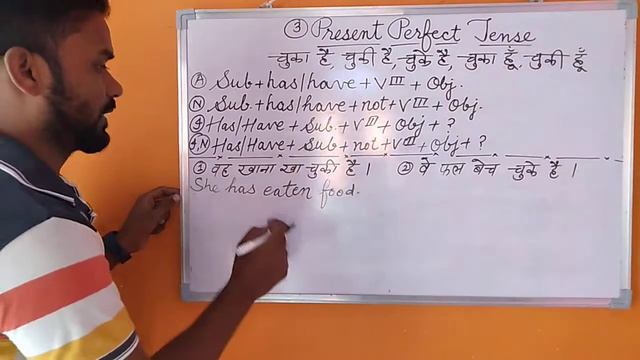 ③ Present Perfect Tense
चुका है, चुकी है, चुके है, चुका हूँ, चुकी हूँ
Ⓐ Sub + has/have + VIII + Obj.
Ⓝ Sub + has/have + not + VIII + Obj.
Has/Have + Sub + VIII + Obj + ?
Has/Have + Sub + not + VIII + Obj + ?
① वह खाना खा चुकी है । ② वे फल बेच चुके है ।
She has eaten food.